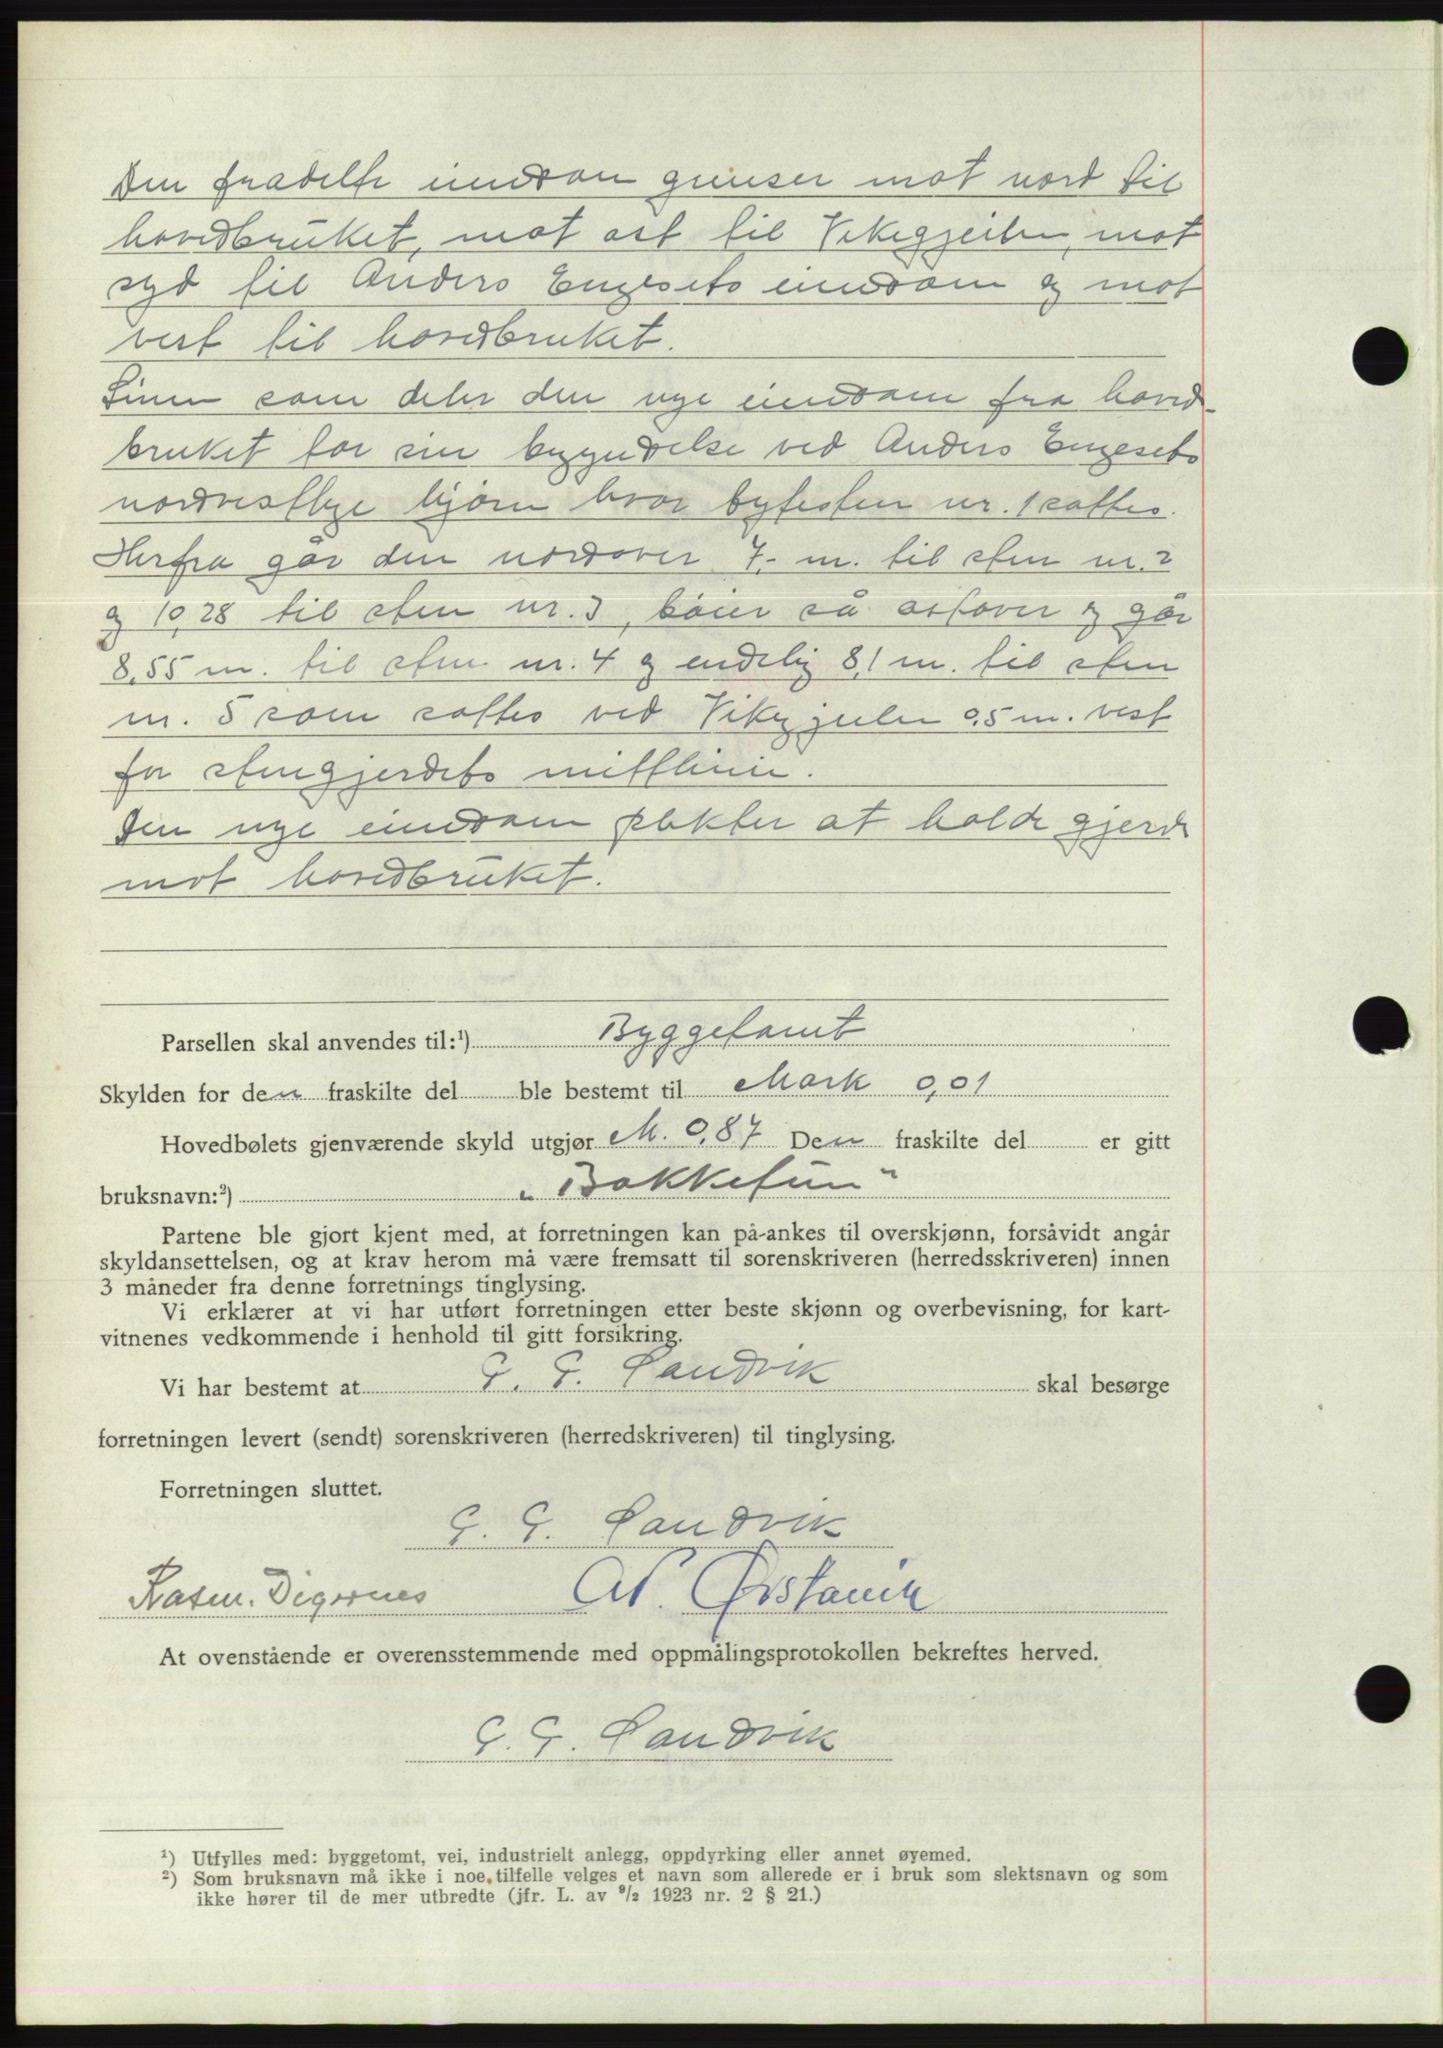 Den fradelte eiendom grenser mot nord til
hovedbruket, mot ost til Vikegjeilen, mot
syd til Anders Engesets eiendom og mot
vest til hovedbruket.
Linen som deler den nye eiendom fra hoved-
bruket tar sin begyndelse ved Anders Engesets
nordvestlige hjørn hvor bytesten nr. 1 sattes.
Herfra går den nordover 7,- m. til sten nr. 2
og 10,28 til sten nr. 3, bøier så ostover og går
8,55 m. til sten nr. 4 og endelig 8,1 m. til sten
nr. 5 som sattes ved Vikegjeilen 0,5 m. vest
for stengjerdets mittlinie.
Den nye eiendom plikter at holde gjerde
mot hovedbruket.
Parsellen skal anvendes til:¹) Byggetomt
Skylden for den fraskilte del ble bestemt til Mark 0,01
Hovedbølets gjenværende skyld utgjør M. 0,87 Den fraskilte del er gitt
bruksnavn:²) "Bakketun"
Partene ble gjort kjent med, at forretningen kan på-ankes til overskjønn, forsåvidt angår
skyldansettelsen, og at krav herom må være fremsatt til sorenskriveren (herredsskriveren) innen
3 måneder fra denne forretnings tinglysing.
Vi erklærer at vi har utført forretningen etter beste skjønn og overbevisning, for kart-
vitnenes vedkommende i henhold til gitt forsikring.
Vi har bestemt at G. G. Sandvik skal besørge
forretningen levert (sendt) sorenskriveren (herredskriveren) til tinglysing.
Forretningen sluttet.
G. G. Sandvik
Rasm. Digernes Ørstavik
At ovenstående er overensstemmende med oppmålingsprotokollen bekreftes herved.
G. G. Sandvik
¹) Utfylles med: byggetomt, vei, industrielt anlegg, oppdyrking eller annet øyemed.
²) Som bruksnavn må ikke i noe tilfelle velges et navn som allerede er i bruk som slektsnavn og som
ikke hører til de mer utbredte (jfr. L. av ⁹/₂ 1923 nr. 2 § 21.)